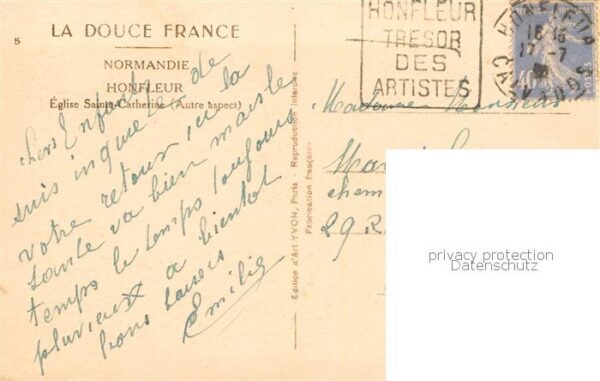 5
LA DOUCE FRANCE
NORMANDIE
HONFLEUR
Église Sainte-Catherine (Autre aspect)
chers Enfants de
suis inquiete la
votre retour, ici la
Sante va bien mais le
temps le temps toujours
pluvieux a bientot
bons baisers
Emilie
Edition d'Art YVON, Paris - Reproduction interdite
Fabrication française
HONFLEUR
TRESOR
DES
ARTISTES
HONFLEUR
18 15
17 -7
CALVADOS
40
Madame Monsieur
Ma
chem
29 R
privacy protection
Datenschutz